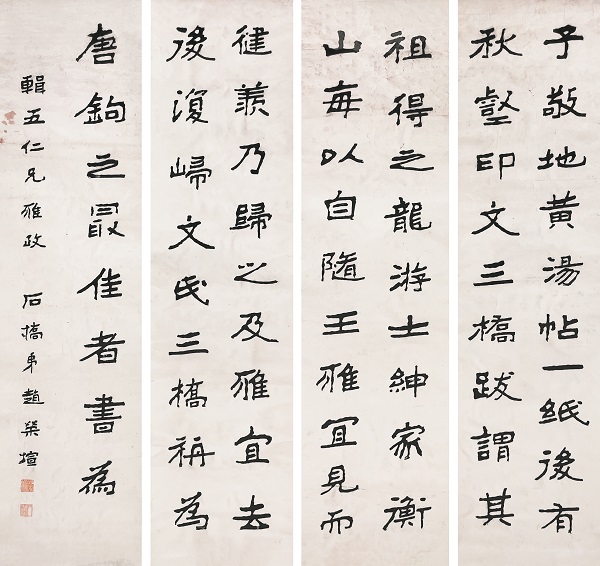 子敬地黄湯帖一紙後有
秋壑印文三橋跋謂其
祖得之龍游士紳家衡
山每以自隨王雅宜見而
健羨乃歸之及雅宜去
後復歸文氏三橋稱為
唐鉤之最佳者書為
輯五仁兄雅政
石橋弟趙榮煊